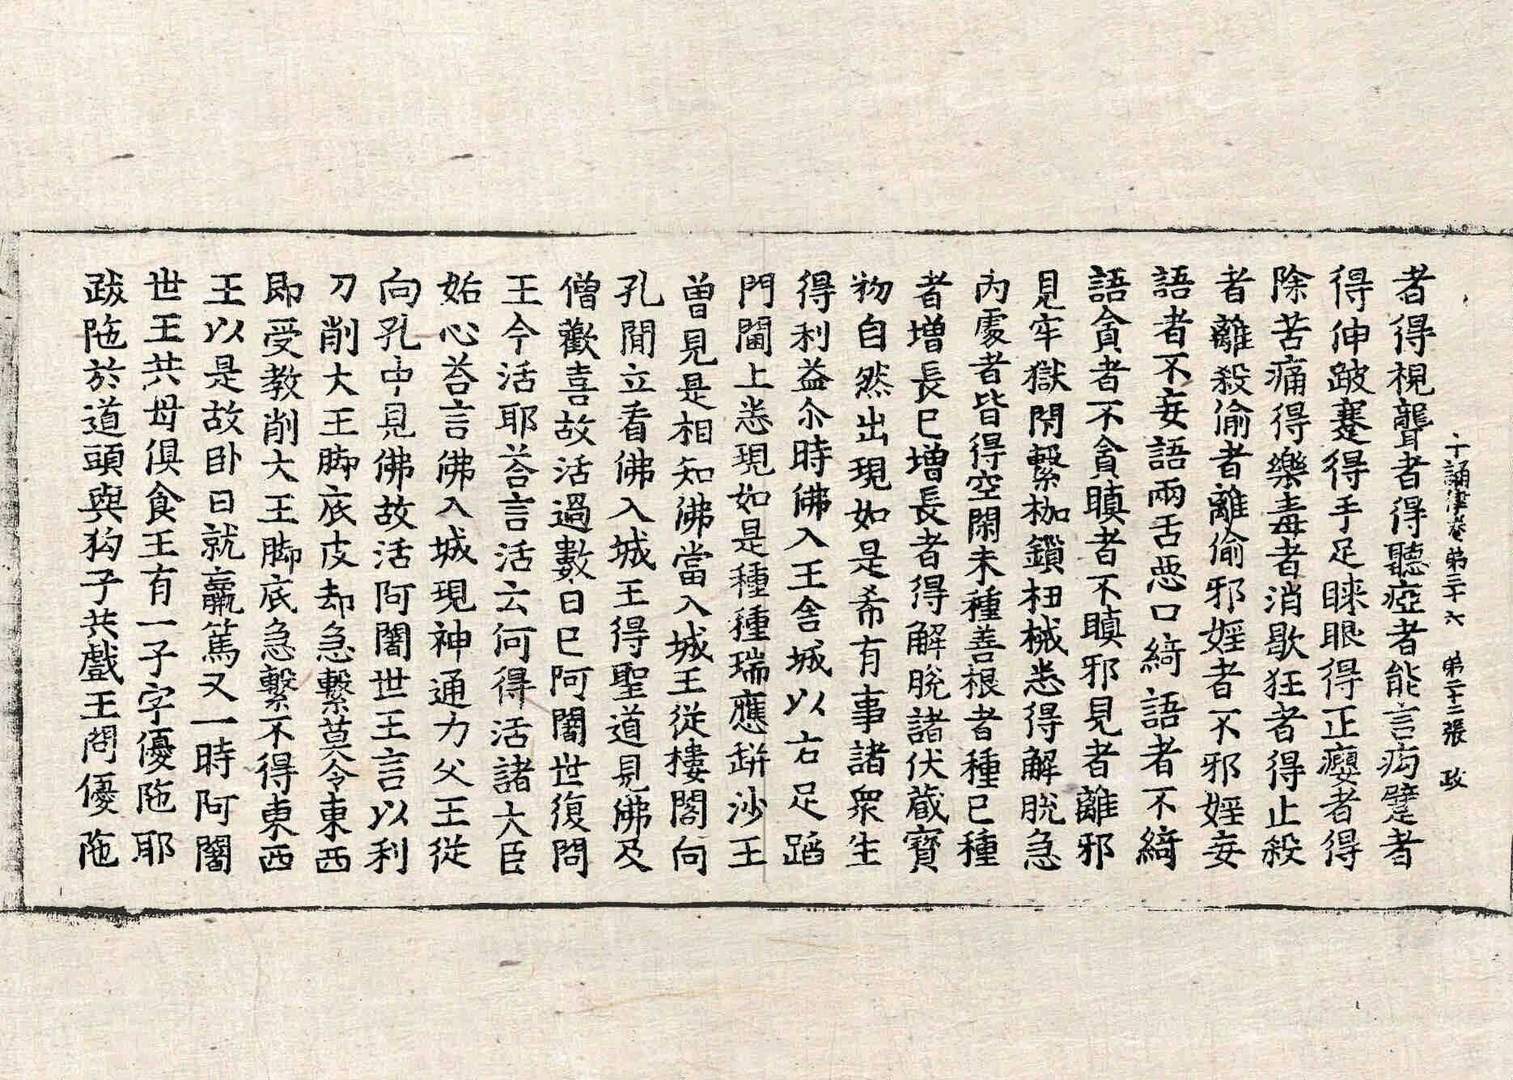 十誦律卷第三十六 第二十二張 政
者得視聾者得聽瘂者能言病躄者
得伸跛蹇得手足睞眼得正癭者得
除苦痛得樂毒者消歇狂者得止殺
者離殺偷者離偷邪婬者不邪婬妄
語者不妄語兩舌惡口綺語者不綺
語貪者不貪瞋者不瞋邪見者離邪
見牢獄閇繫枷鎖杻械悉得解脫急
內處者皆得空閑未種善根者種已種
者增長已增長者得解脫諸伏藏寶
物自然出現如是希有事諸衆生
得利益尒時佛入王舍城以右足蹈
門閫上悉現如是種種瑞應缾沙王
曾見是相知佛當入城王從樓閣向
孔閒立看佛入城王得聖道見佛及
僧歡喜故活過數日已阿闍世復問
王今活耶荅言活云何得活諸大臣
妬心荅言佛入城現神通力父王從
向孔中見佛故活阿闍世王言以利
刀削大王脚底皮却急繫莫令東西
即受教削大王脚底急繫不得東西
王以是故卧日就羸篤又一時阿闍
世王共母俱食王有一子字優陁耶
跋陁於道頭與狗子共戲王問優陁